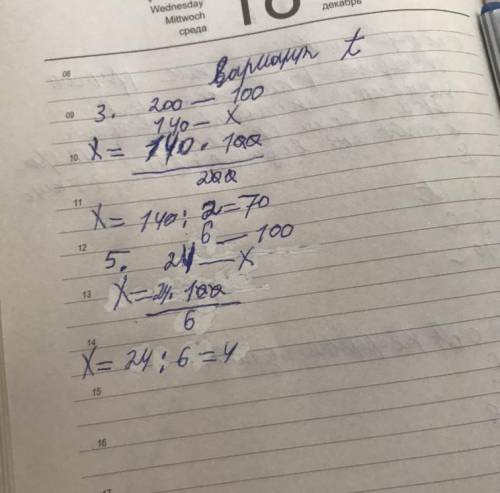 Wednesday
Mittwoch
среда
декабрь
08
Вариант t
09
3. 200 — 100
140 — x
10
X = 140 · 100
200
11
X = 140 : 2 = 70
12
6 — 100
5. 24 — x
13
X = 24 · 100
6
14
X = 24 : 6 = 4
15
16
17